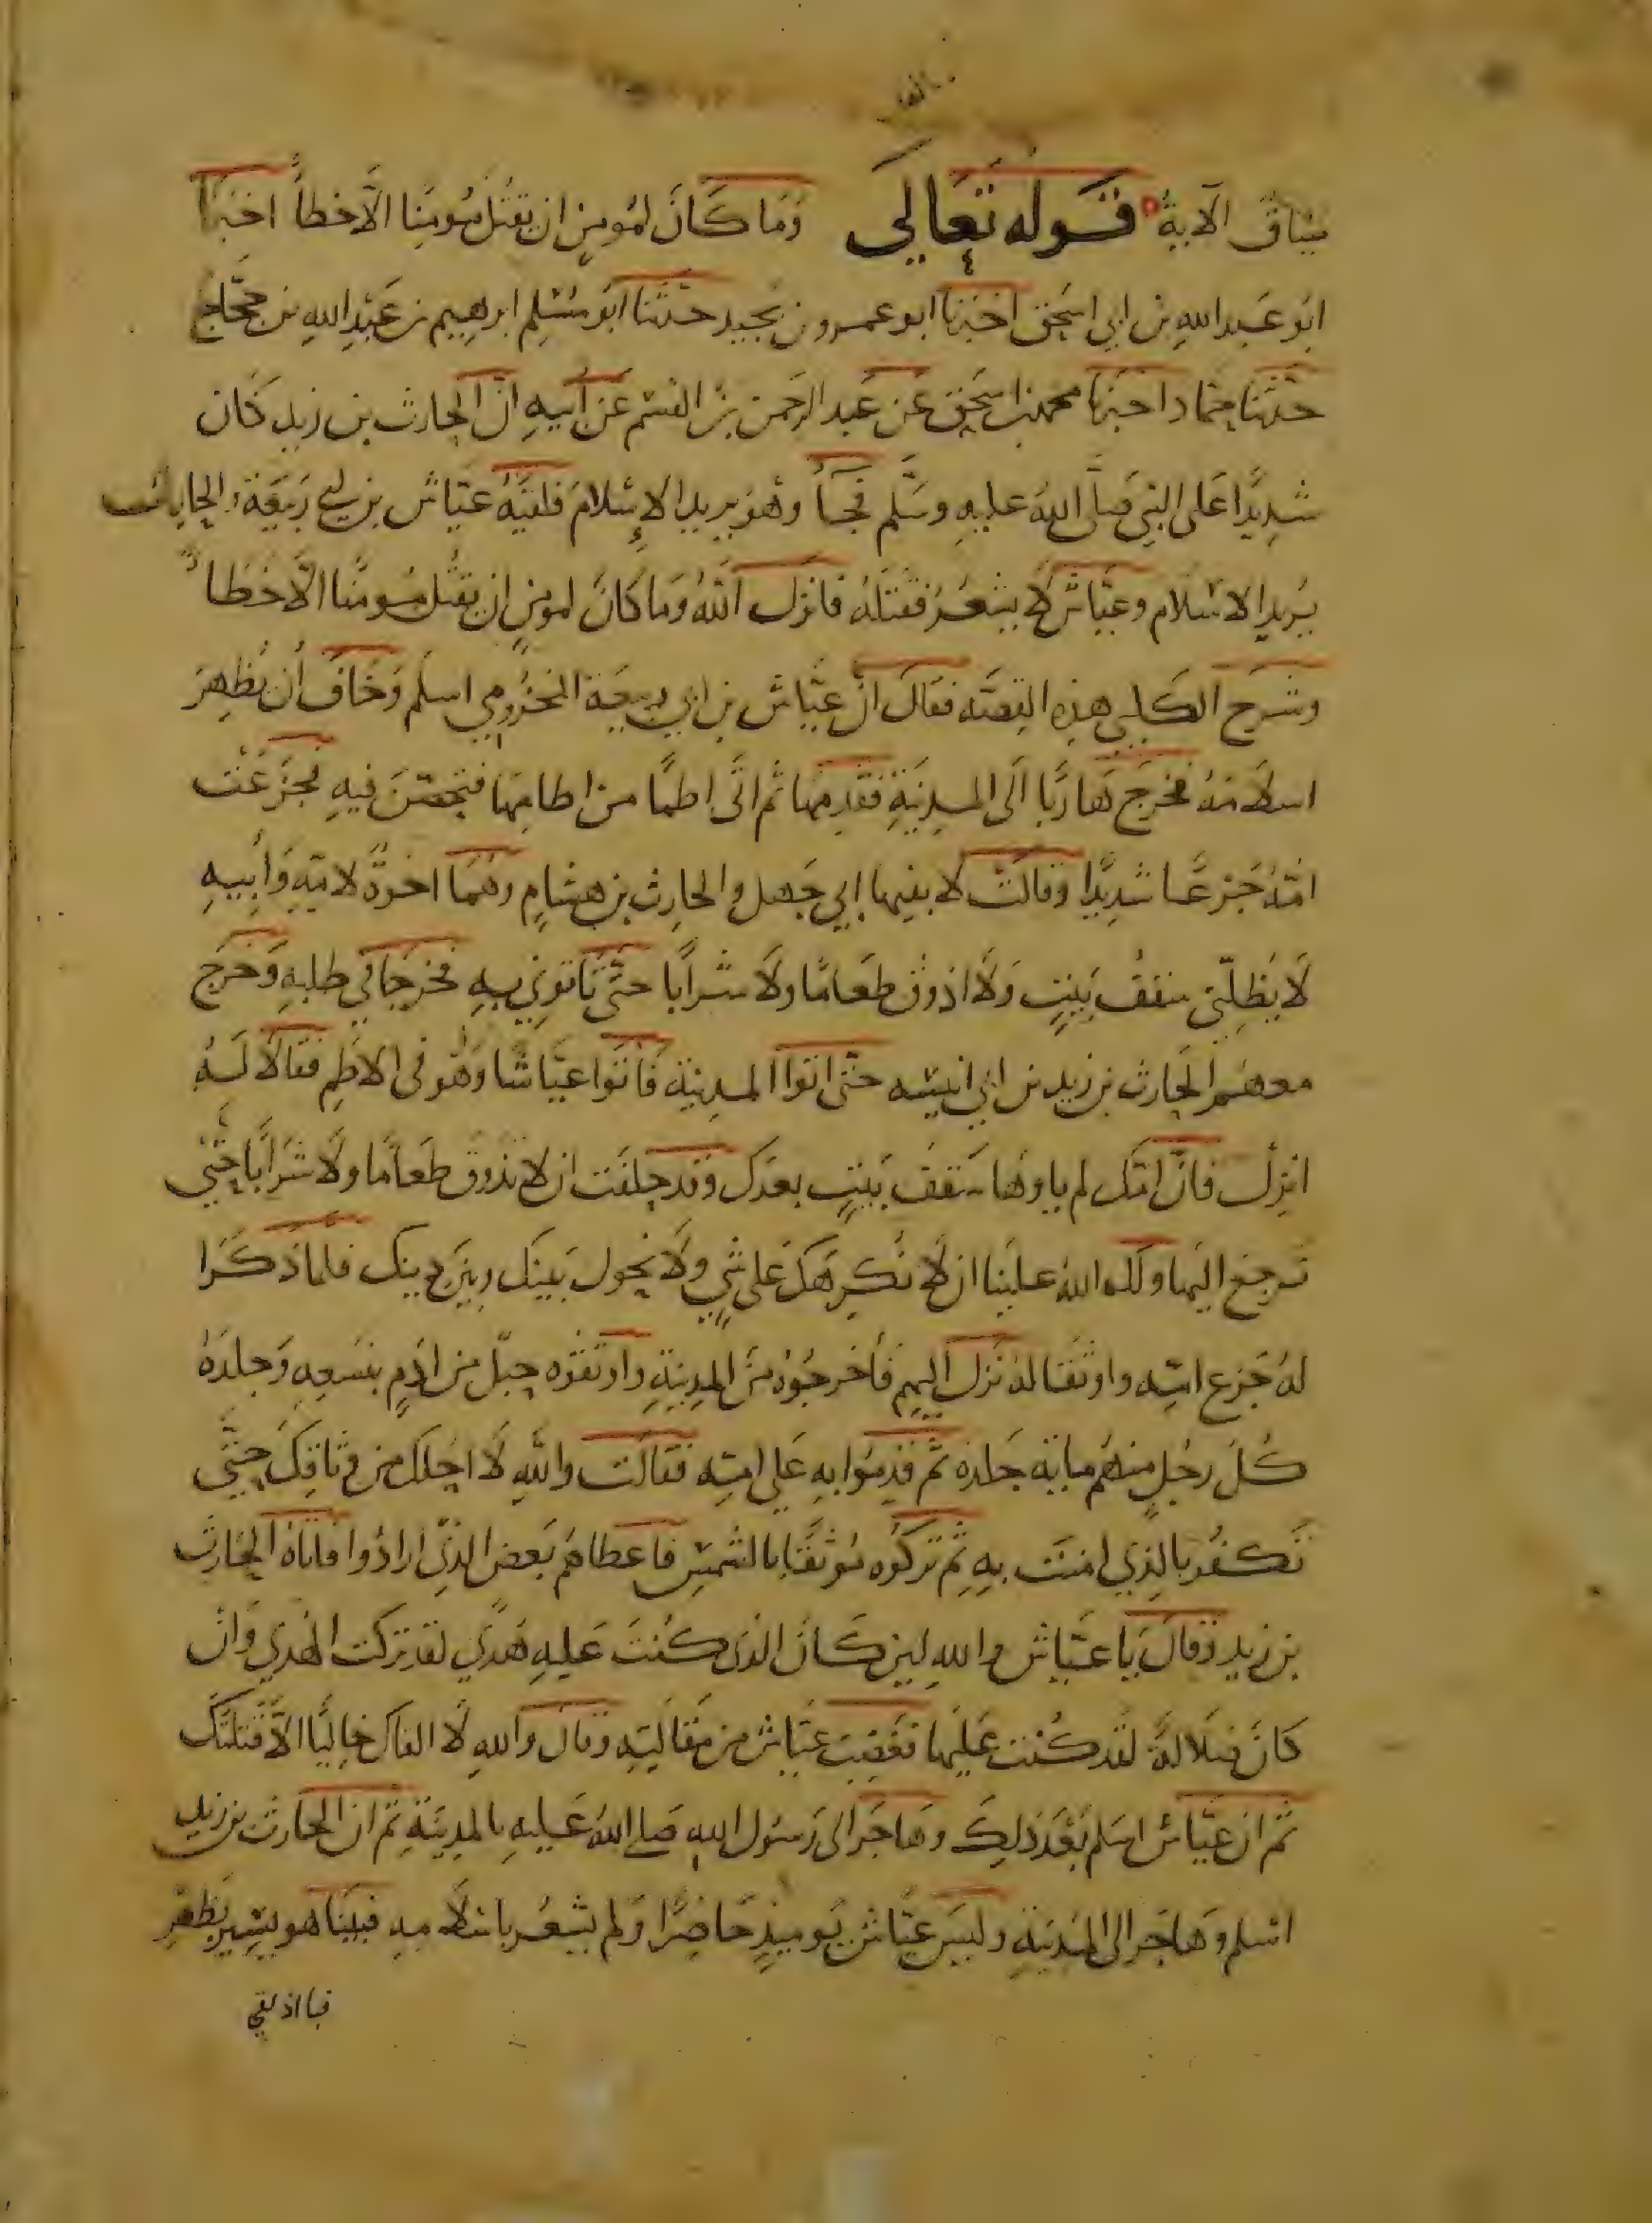 ميثاق الآية قوله تعالى وَمَا كَانَ لمُومِنٍ ان يَقتُلَ مُومِنًا الَّا خطأً اخبرَنا
ابُو عَبد اللهِ بن ابي اسحق اخبَرنا ابو عمرو بن نجيد حدثنا ابو مُسْلِم ابرهيم بن عَبْدِ اللهِ بن حجَّاج
حَدَّثَنا حمَّاد اخبَرنا محمد بن اسحق عَن عَبد الرَحمن بن القسم عَن أبيهِ انَّ الحارث بن زيد كَان
شدِيدًا عَلى النبي صَلَّى اللهُ عليهِ وسَلَّم فجَآ وهُوَ يريد الإسْلامَ فلقيَهُ عيَّاش بن ابي رَبيعَة والحارث
يُريد الاسْلام وعيَّاش لَا يشعُرُ فقتَلَهُ فانزَل اللهُ وَمَا كَانَ لمومنٍ ان يَقتُل مُومنًا الَّا خَطَأً
وشَرَحَ الكَلبي هذِهِ القِصَّه فقَالَ انَّ عيَّاش بن ابي ربيعَة المخزُومي اسلَم وَخَافَ أن يُظهِرَ
اسلَامَهُ فخرَجَ هَاربًا الَى المدِينَةِ فقَدِمَها ثم اتَى اطمًا من اطامِهَا فتحصَّنَ فيهِ فجَزَعَت
امّهُ جَزعًا شدِيدًا وقَالَتْ لابنيها ابي جَهل والحارِث بن هشامٍ وهُمَا اخوَهُ لامّهِ وَأبيهِ
لَا يُظِلّني سَقفُ بَيتٍ وَلَا اذوقُ طَعامًا ولَا شرابًا حتَّى تاتوني بهِ فخرجَا في طلبهِ وَخَرَج
معهُم الحَارث بن زيد بن ابي انيسه حتى اتوا المدِينَة فَاتَوا عيَّاشًا وَهُو في الاطم فقالَا لَهُ
انزِل فانَّ امّك لم ياوهَا سَقفُ بَيتٍ بعدَك وقد حلفَت ان لا تذوقَ طَعامًا ولَا شَرابًا حتى
تَرجعَ اليهَا ولَك اللهُ علَينا ان لَا نُكرِهَكَ عَلى شيٍ ولَا نحُولَ بَينَك وبَين دِينك فلمَّا ذكَرَا
لهُ جَزع امّه واوثقَا لهُ نَزل اليهم فأخرجُوهُ منَ المدِينةِ واوثقوه حبلٍ من ادَمٍ بنسعِهِ وَجلدَهُ
كُلُ رجُلٍ منهُم مايَة جَلده ثمَّ قَدِمُوا بهِ عَلى امّه فقَالَت واللهِ لَا احلك من وثاقِكَ حتَّى
تَكفُر بالذِي امنتَ بهِ ثم تركُوه مُوثقًا بالشمسِ فاعطاهُم بَعض الذِي ارادُوا فاتَاهُ الحَارث
بن زيد وَقالَ يَا عيَّاش والله لين كَانَ الذي كُنتَ عَليهِ هُدًي لقد تركت الهُدَي وَان
كَانَ ضَلالَة لقَد كُنت علَيها فغَضِبَ عيَّاش من مقَالتِه وقالَ واللهِ لَا القاكَ خَاليًا الَّا قتَلتُك
ثم ان عيَّاش اسلَم بَعدَ ذلِكَ وهَاجَر الى رَسُول اللهِ صَلي اللهُ عَليهِ بالمدينةِ ثم ان الحَارثَ بن زيد
اسْلم وَهاجَر الى المدينَةِ وليسَ عيَّاش يَوميذٍ حَاضِرًا وَلم يشعُر باسْلَامِهِ فبَينَا هو يسِير بظَهرِ
قبا اذ لقي